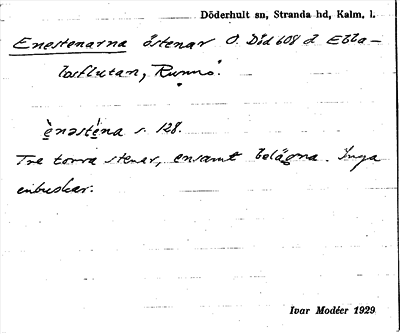 Döderhult sn, Stranda hd, Kalm. l.
Enestenarna östenar O. Död 608 å Ebba-
losflutan, Runnö.
ènəstèna s. 128.
Tre torra stenar, ensamt belägna. Inga
enbuskar.
Ivar Modéer 1929